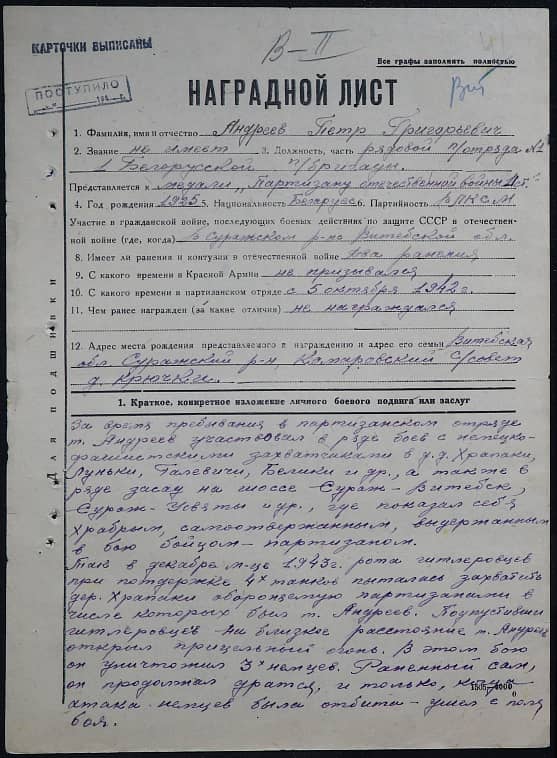 КАРТОЧКИ ВЫПИСАНЫ
В-II
Все графы заполнить полностью
ПОСТУПИЛО
194 г.
НАГРАДНОЙ ЛИСТ
1. Фамилия, имя и отчество Андреев Петр Григорьевич
2. Звание не имеет 3. Должность, часть рядовой п/отряда №1
1 Белорусской п/бригады.
Представляется к медали "Партизану отечественной войны II ст."
4. Год рождения 1925 5. Национальность Беларус 6. Партийность ВЛКСМ
Участие в гражданской войне, последующих боевых действиях по защите СССР и отечествен-
ной войне (где, когда) в Суражском р-не Витебской обл.
8. Имеет ли ранения и контузии в отечественной войне два ранения
9. С какого времени в Красной Армии не призывался
10. С какого времени в партизанском отряде с 5 октября 1942 г.
11. Чем ранее награжден (за какие отличия) не награждался
12. Адрес места рождения представляемого к награждению и адрес его семьи Витебская
обл. Суражский р-н, Комаровский с/совет
д. Крючки.
Для подшивки
1. Краткое, конкретное изложение личного боевого подвига или заслуг
За время пребывания в партизанском отряде
т. Андреев участвовал в ряде боев с немецко-
фашистскими захватчиками в д.д. Храпаки,
Луньки, Галевичи, Белики и др., а также в
ряде засад на шоссе Сураж-Витебск,
Сураж-Усвяты и др., где показал себя
храбрым, самоотверженным, выдержанным
в бою бойцом-партизаном.
Так в декабре м-це 1943 г. рота гитлеровцев
при потдержке 4х танков пыталась захватить
дер. Храпаки обороняемую партизанами в
числе которых был т. Андреев. Подпустивши
гитлеровцев на близкое расстояние т. Андреев
открыл прицельный огонь. В этом бою
он уничтожил 3х немцев. Раненный сам,
он продолжал драться, и только, когда
атака немцев была отбита - ушел с поля
боя.